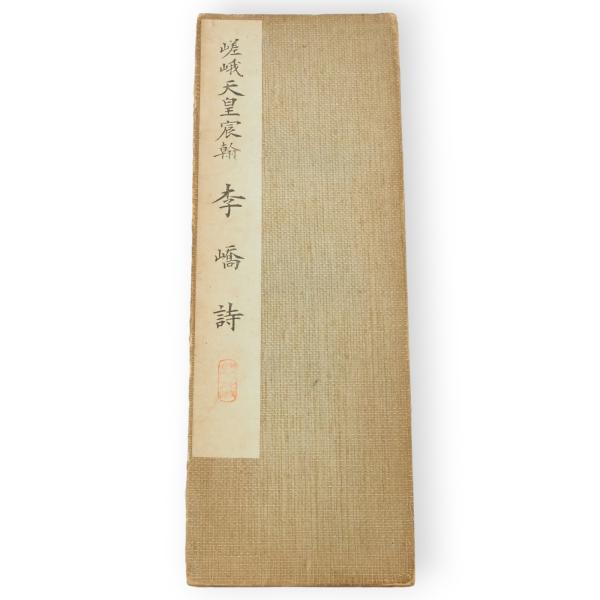 嵯峨天皇宸翰 李嶠詩